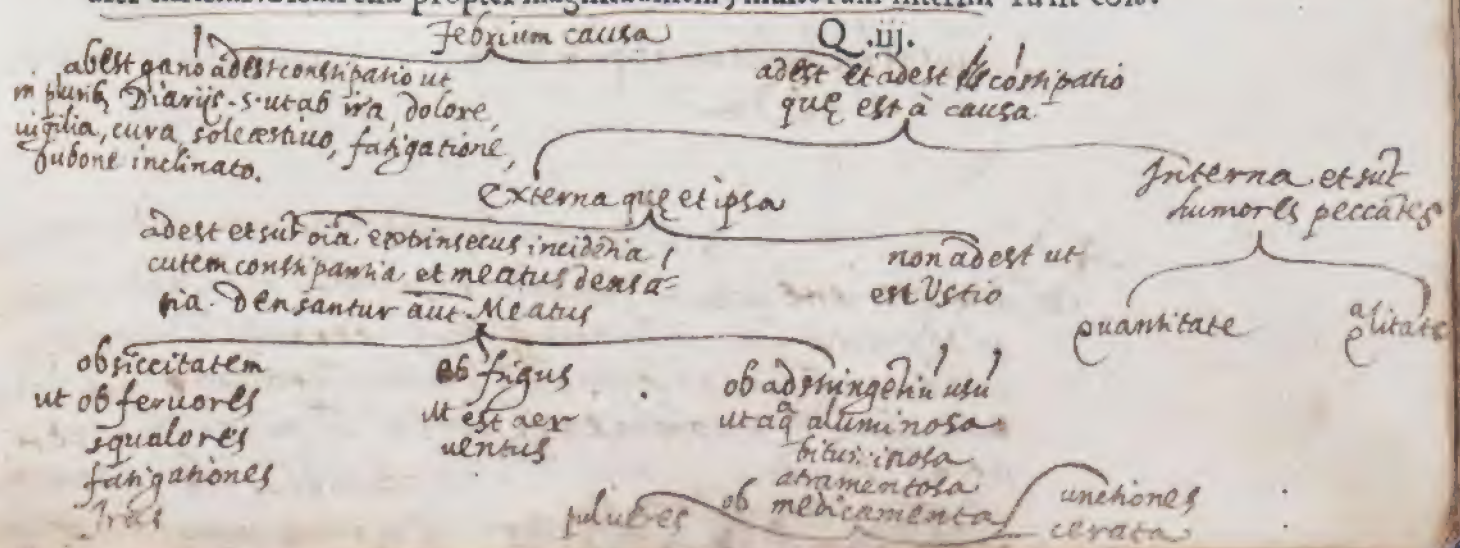 Febrium causa
Q.iij.
abest qāno adest constipatio ut
in plurib, Diarijs .s. ut ab ira, dolore,
uigilia, cura, sole æstiuo, fatigatione,
bubone inclinato.
adest et adest cōstipatio
quę est à causa.
Externa quę et ipsa
Interna et sūt
humores peccātes
adest et sūt oīa extrinsecus incidētia
cutem constipantia et meatus densā-
tia. Densantur aut Meatus
non adest ut
est Ustio
quantitate
qalitate
ob siccitatem
ut ob feruores
squalores
fatigationes
Iras
ob frigus
ut est aer
uentus
ob adstringētiū usū
ut aqa aluminosa
bituminosa
atramentosa
ob medicamenta
pulueres
unctiones
cerata